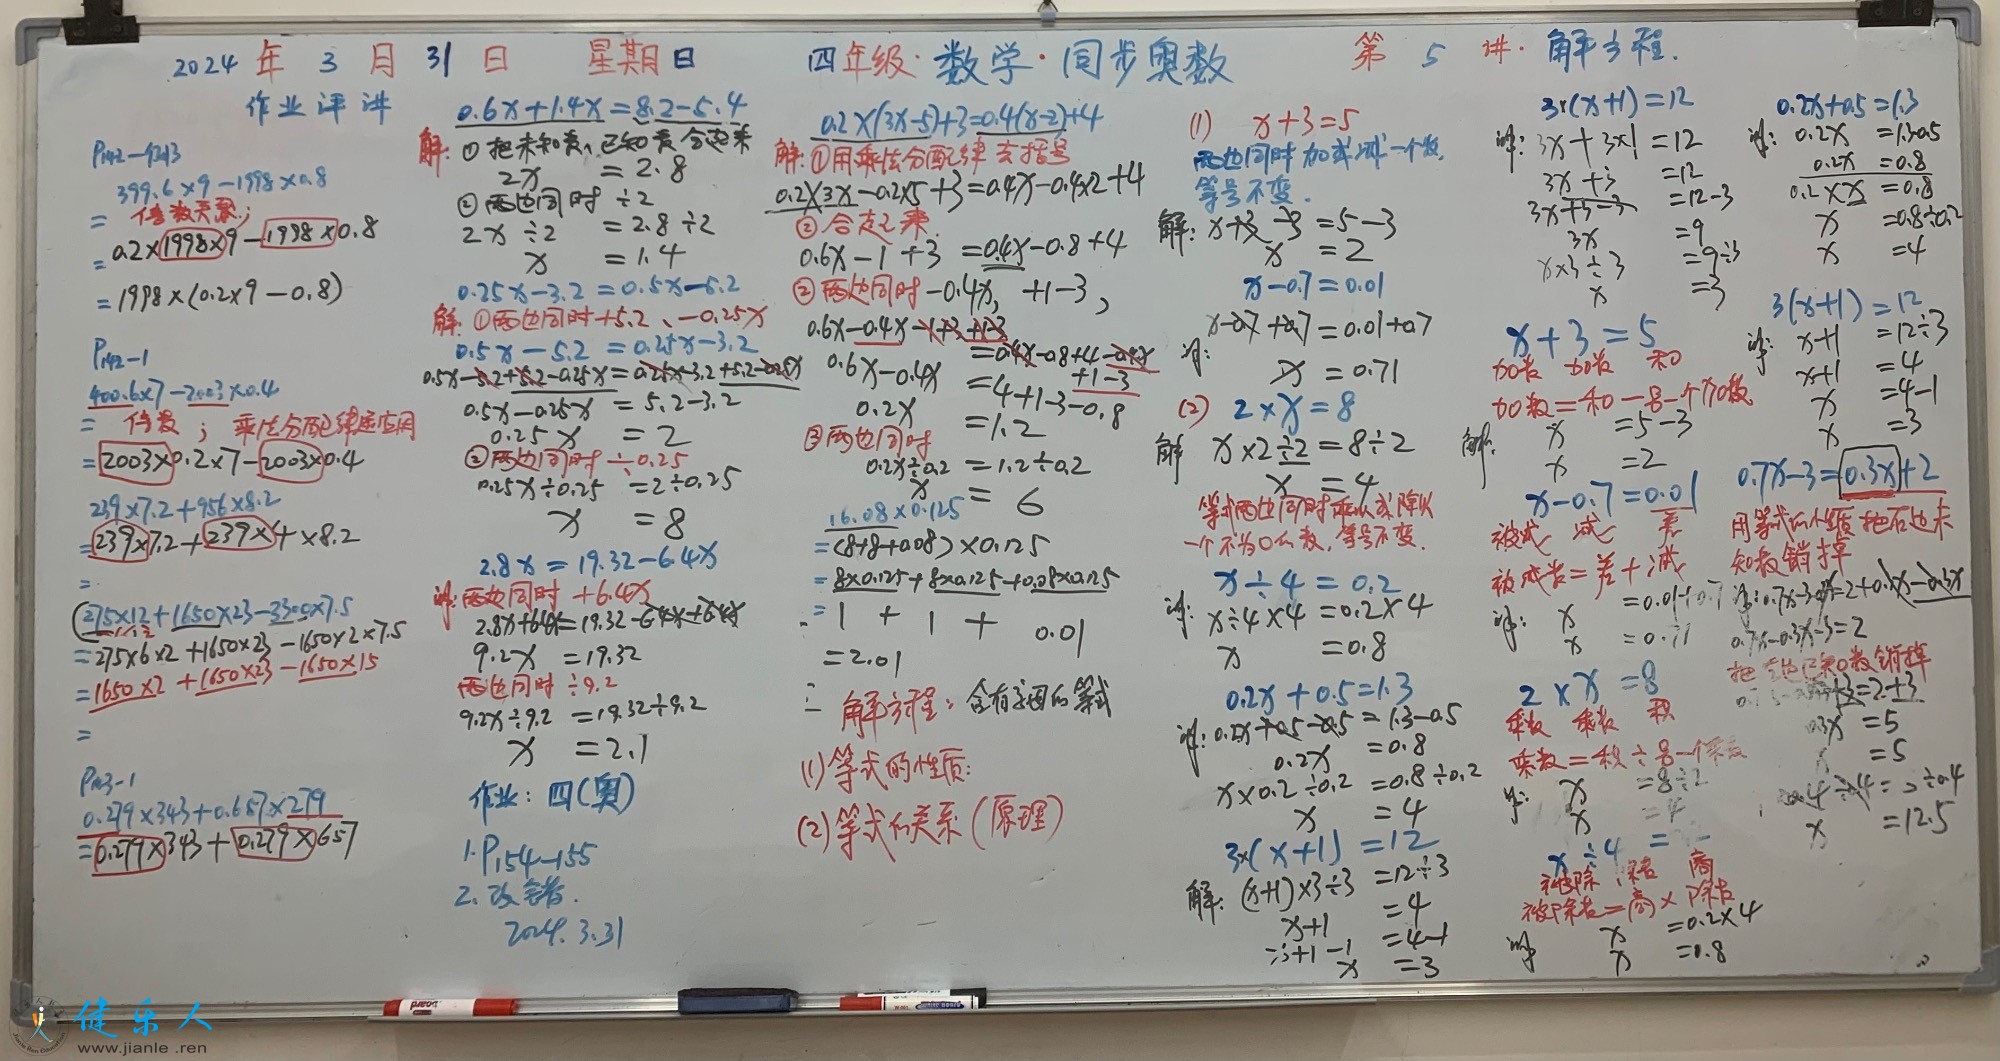 2024年3月31日 星期日 四年级·数学·同步奥数 第5讲·解方程.
作业评讲
399.6×9-1998×0.8
= 倍数关系;
=0.2×1998×9-1998×0.8
=1998×(0.2×9-0.8)
P142-1
400.6×7-2003×0.4
= 倍数; 乘法分配律逆应用
=2003×0.2×7-2003×0.4
239×7.2+956×8.2
=239×7.2+239×4×8.2
=
275×12+1650×23-3300×7.5
=275×6×2+1650×23-1650×2×7.5
=1650×2+1650×23-1650×15
=
P143-1
0.279×343+0.657×279
=0.279×343+0.279×657
0.6x+1.4x=8.2-5.4
解:①把未知素、已知素合起来
2x=2.8
②两边同时÷2
2x÷2=2.8÷2
x=1.4
0.25x-3.2=0.5x-5.2
解:①两边同时+5.2、-0.25x
0.5x-5.2=0.25x-3.2
0.5x-5.2+5.2-0.25x=0.25x-3.2+5.2-0.25x
0.5x-0.25x=5.2-3.2
0.25x=2
②两边同时÷0.25
0.25x÷0.25=2÷0.25
x=8
2.8x=19.32-6.4x
解:两边同时+6.4x
2.8x+6.4x=19.32-6.4x+6.4x
9.2x=19.32
两边同时÷9.2
9.2x÷9.2=19.32÷9.2
x=2.1
作业:四(奥)
1.P154-155
2.改错.
2024.3.31
0.2×(3x-5)+3=0.4(x-2)+4
解:①用乘法分配律去括号
0.2×3x-0.2×5+3=0.4x-0.4×2+4
②合起来
0.6x-1+3=0.4x-0.8+4
②两边同时-0.4x,+1-3,
0.6x-0.4x-1+3+1-3
=0.4x-0.8+4-0.4x
+1-3
0.6x-0.4x=4+1-3-0.8
0.2x=1.2
③两边同时
0.2x÷0.2=1.2÷0.2
x=6
16.08×0.125
=(8+8+0.08)×0.125
=8×0.125+8×0.125+0.08×0.125
=1+1+0.01
=2.01
二 解方程:含有字母的等式
(1)等式的性质:
(2)等式的关系(原理)
(1) x+3=5
两边同时加或减一个数,
等号不变.
解:x+3-3=5-3
x=2
x-0.7=0.01
x-0.7+0.7=0.01+0.7
解:
x=0.71
(2) 2×x=8
解 x×2÷2=8÷2
x=4
等式两边同时乘以或除以
一个不为0的数,等号不变.
x÷4=0.2
解:x÷4×4=0.2×4
x=0.8
0.2x+0.5=1.3
解:0.2x+0.5-0.5=1.3-0.5
0.2x=0.8
x×0.2÷0.2=0.8÷0.2
x=4
3×(x+1)=12
解:(x+1)×3÷3=12÷3
x+1=4
x+1-1=4-1
x=3
3×(x+1)=12
解:3x+3×1=12
3x+3=12
3x+3-3=12-3
3x=9
x×3÷3=9÷3
x=3
x+3=5
加数 加数 和
加数=和-另一个加数
解:x=5-3
x=2
x-0.7=0.01
被减 减 差
被减数=差+减
解:x=0.01+0.7
x=0.71
2×x=8
乘数 乘数 积
乘数=积÷另一个乘数
解:x=8÷2
x=4
x÷4=
被除 除数 商
被除数=商×除数
解 x=0.2×4
x=0.8
0.2x+0.5=1.3
解:0.2x=1.3-0.5
0.2x=0.8
0.2×x=0.8
x=0.8÷0.2
x=4
3(x+1)=12
解:x+1=12÷3
x+1=4
x=4-1
x=3
0.7x-3=0.3x+2
用等式的性质把右边未
知数销掉
解:0.7x-3-0.3x=2+0.3x-0.3x
0.7x-0.3x-3=2
把左边已知数销掉
+3=2+3
=5
=5
x=12.5
健乐人
www.jianle.ren